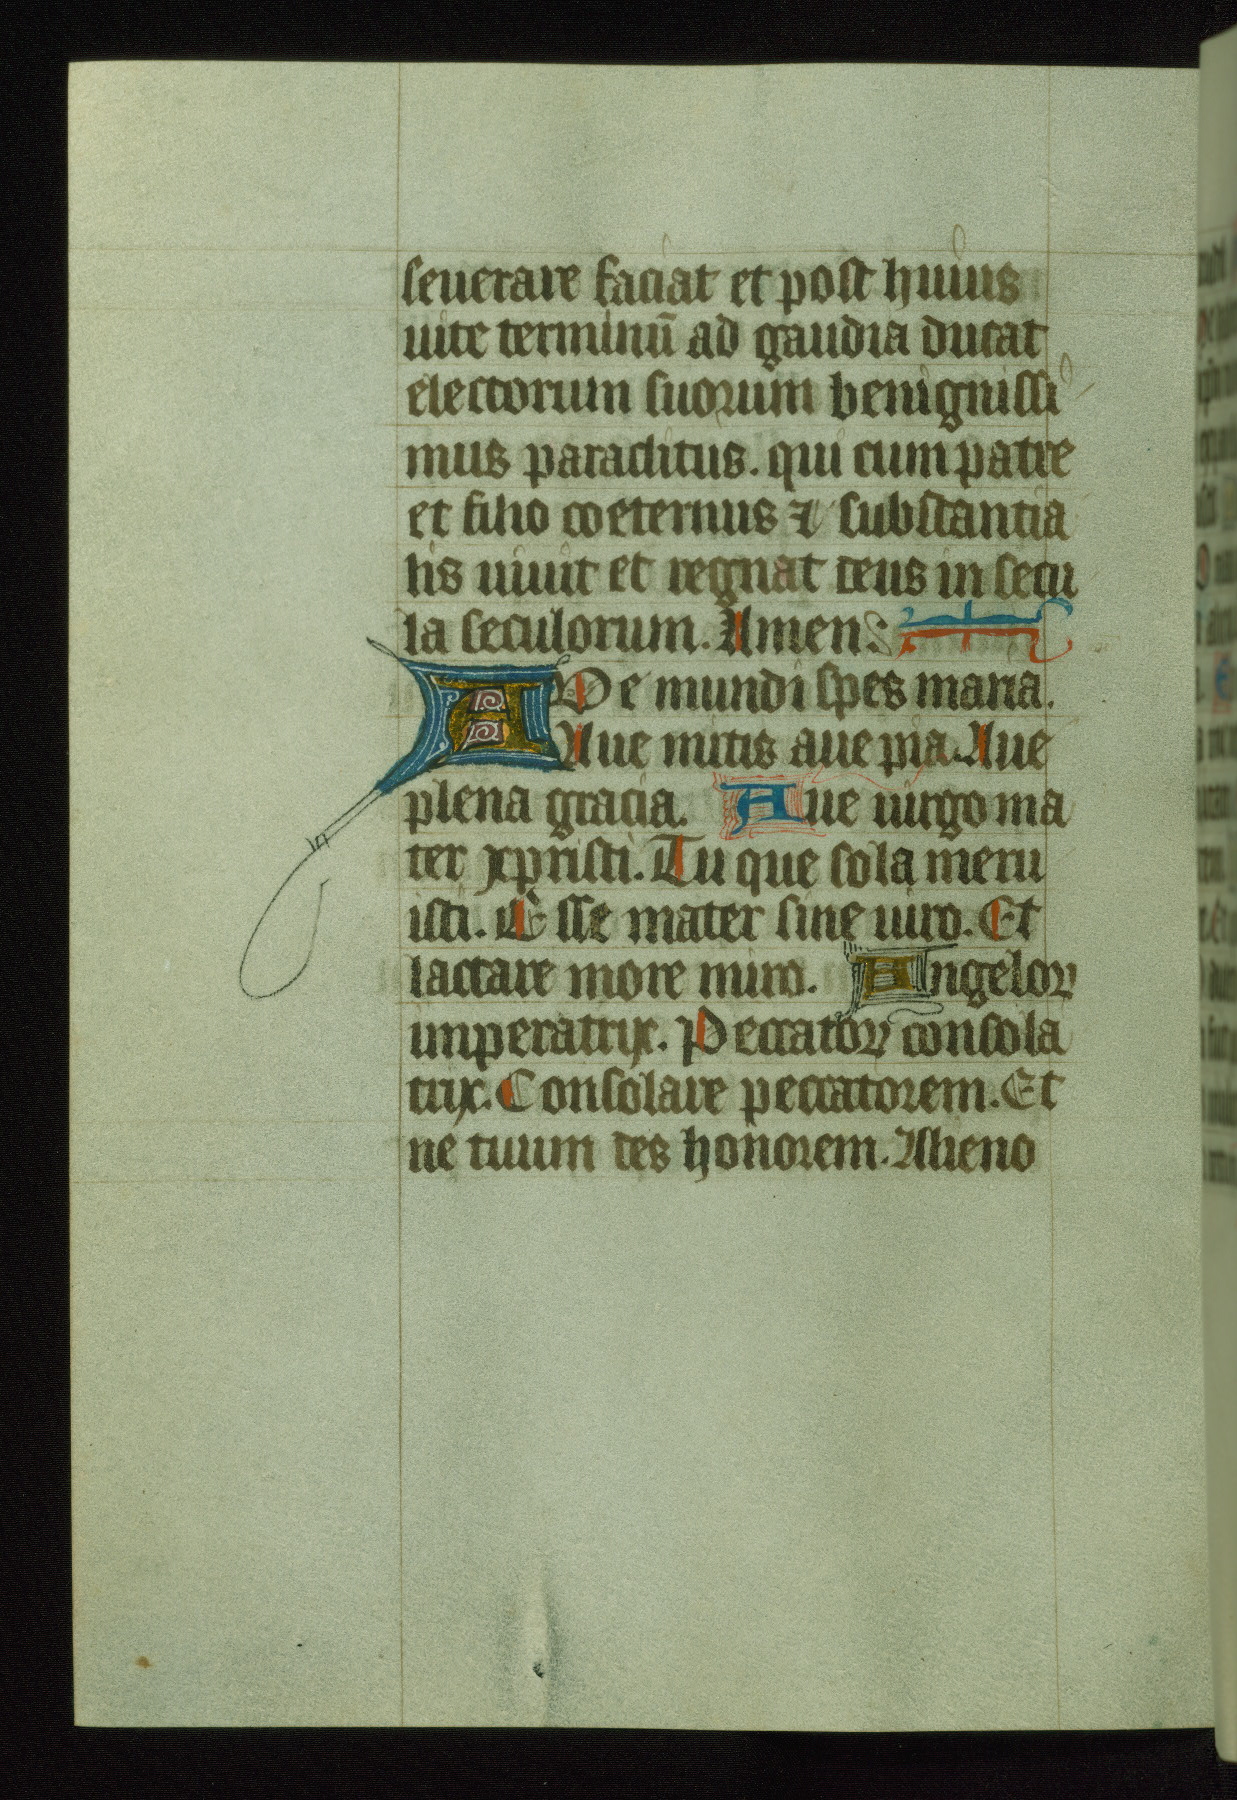 seuerare faciat et post huius
uite terminū ad gaudia ducat
electorum suorum benignissi
mus paraclitus. qui cum patre
et filio coeternus ⁊ substantia
lis uiuit et regnat deus in secu
la seculorum. Amen:
AVe mundi spes maria.
Aue mitis aue pia. Aue
plena gracia. Aue uirgo ma
ter xpristi. Tu que sola meru
isti. Esse mater sine uiro. Et
lactare more miro. Angeloꝝ
imperatrix. Peccatoꝝ consola
trix. Consolare peccatorem. Et
ne tuum des honorem. Alieno